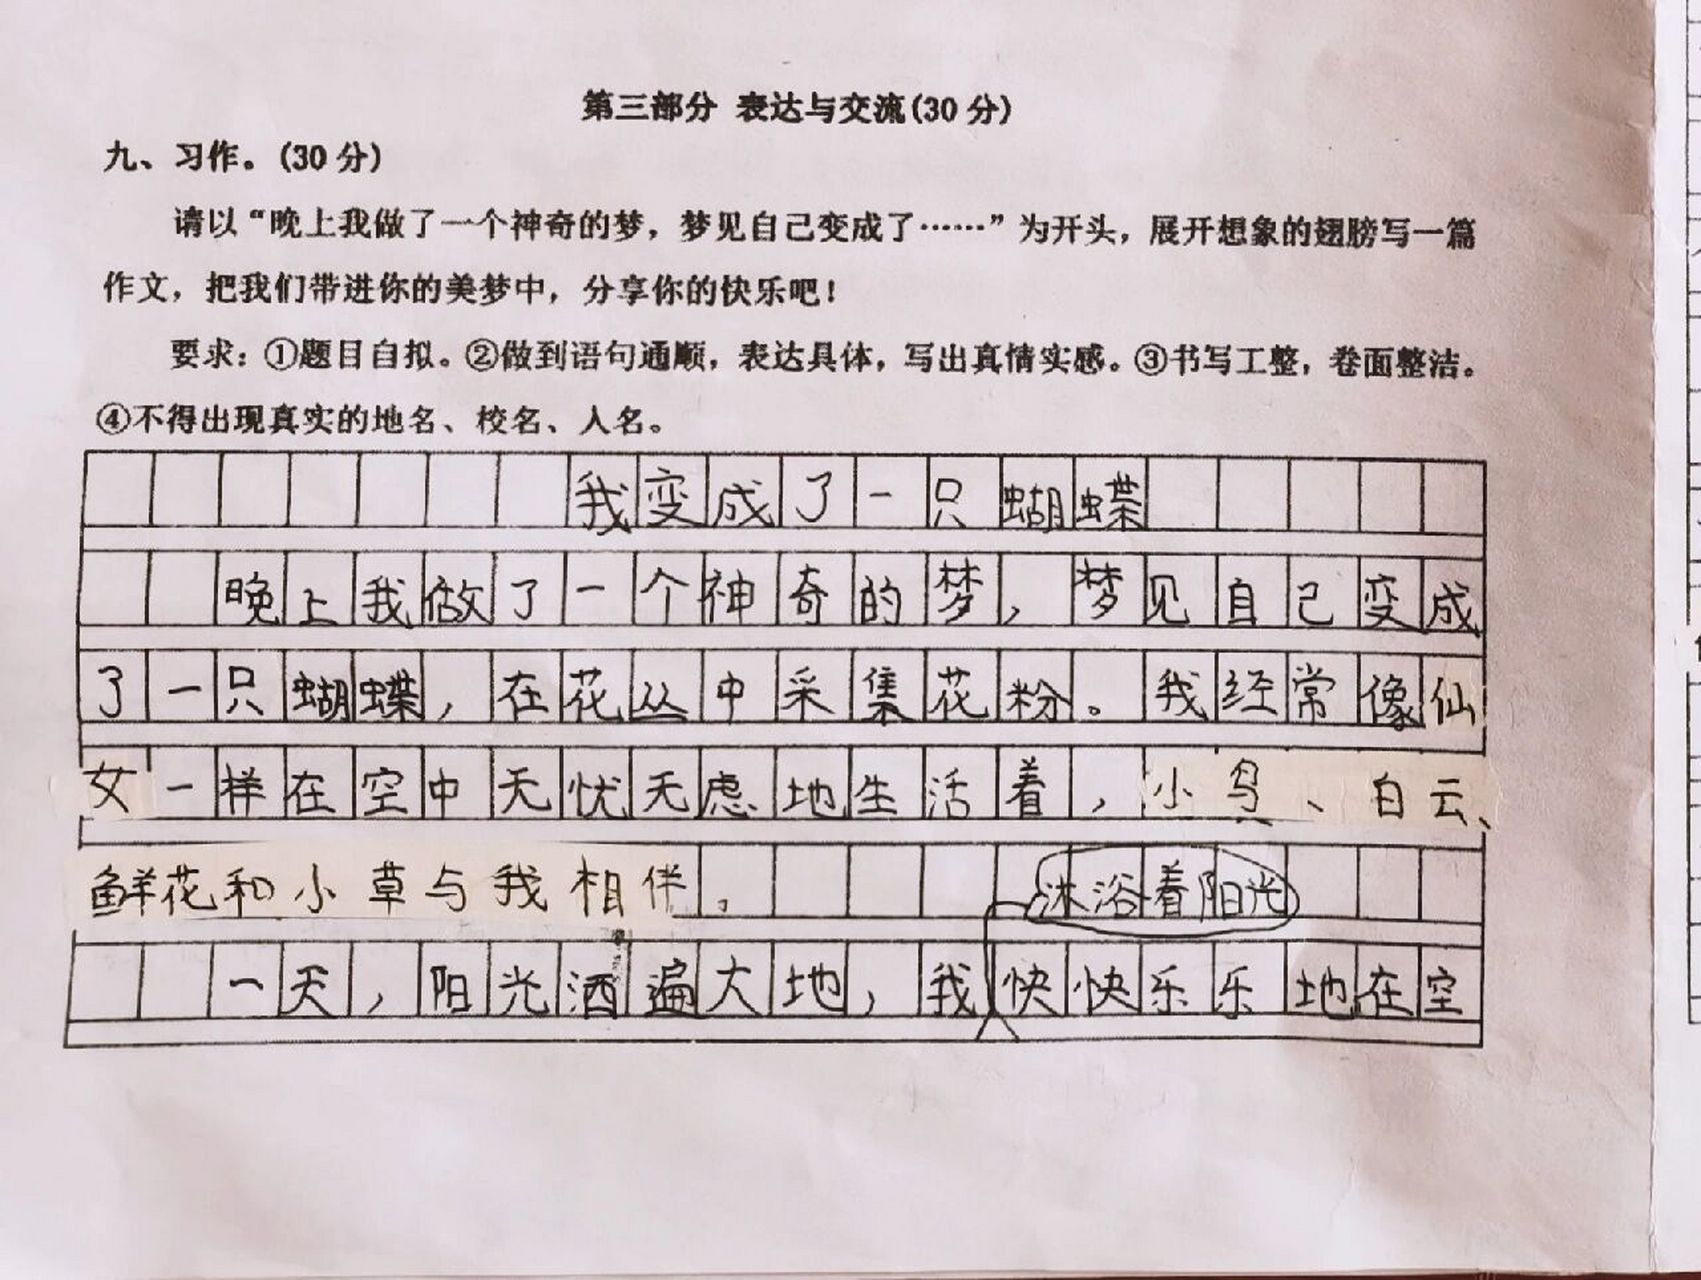 第三部分 表达与交流(30分)
九、习作。(30分)
请以“晚上我做了一个神奇的梦，梦见自己变成了……”为开头，展开想象的翅膀写一篇
作文，把我们带进你的美梦中，分享你的快乐吧！
要求：①题目自拟。②做到语句通顺，表达具体，写出真情实感。③书写工整，卷面整洁。
④不得出现真实的地名、校名、人名。
我变成了一只蝴蝶
晚上我做了一个神奇的梦，梦见自己变成
了一只蝴蝶，在花丛中采集花粉。我经常像仙
女一样在空中无忧无虑地生活着，小鸟、白云、
鲜花和小草与我相伴。
沐浴着阳光
一天，阳光洒遍大地，我快快乐乐地在空